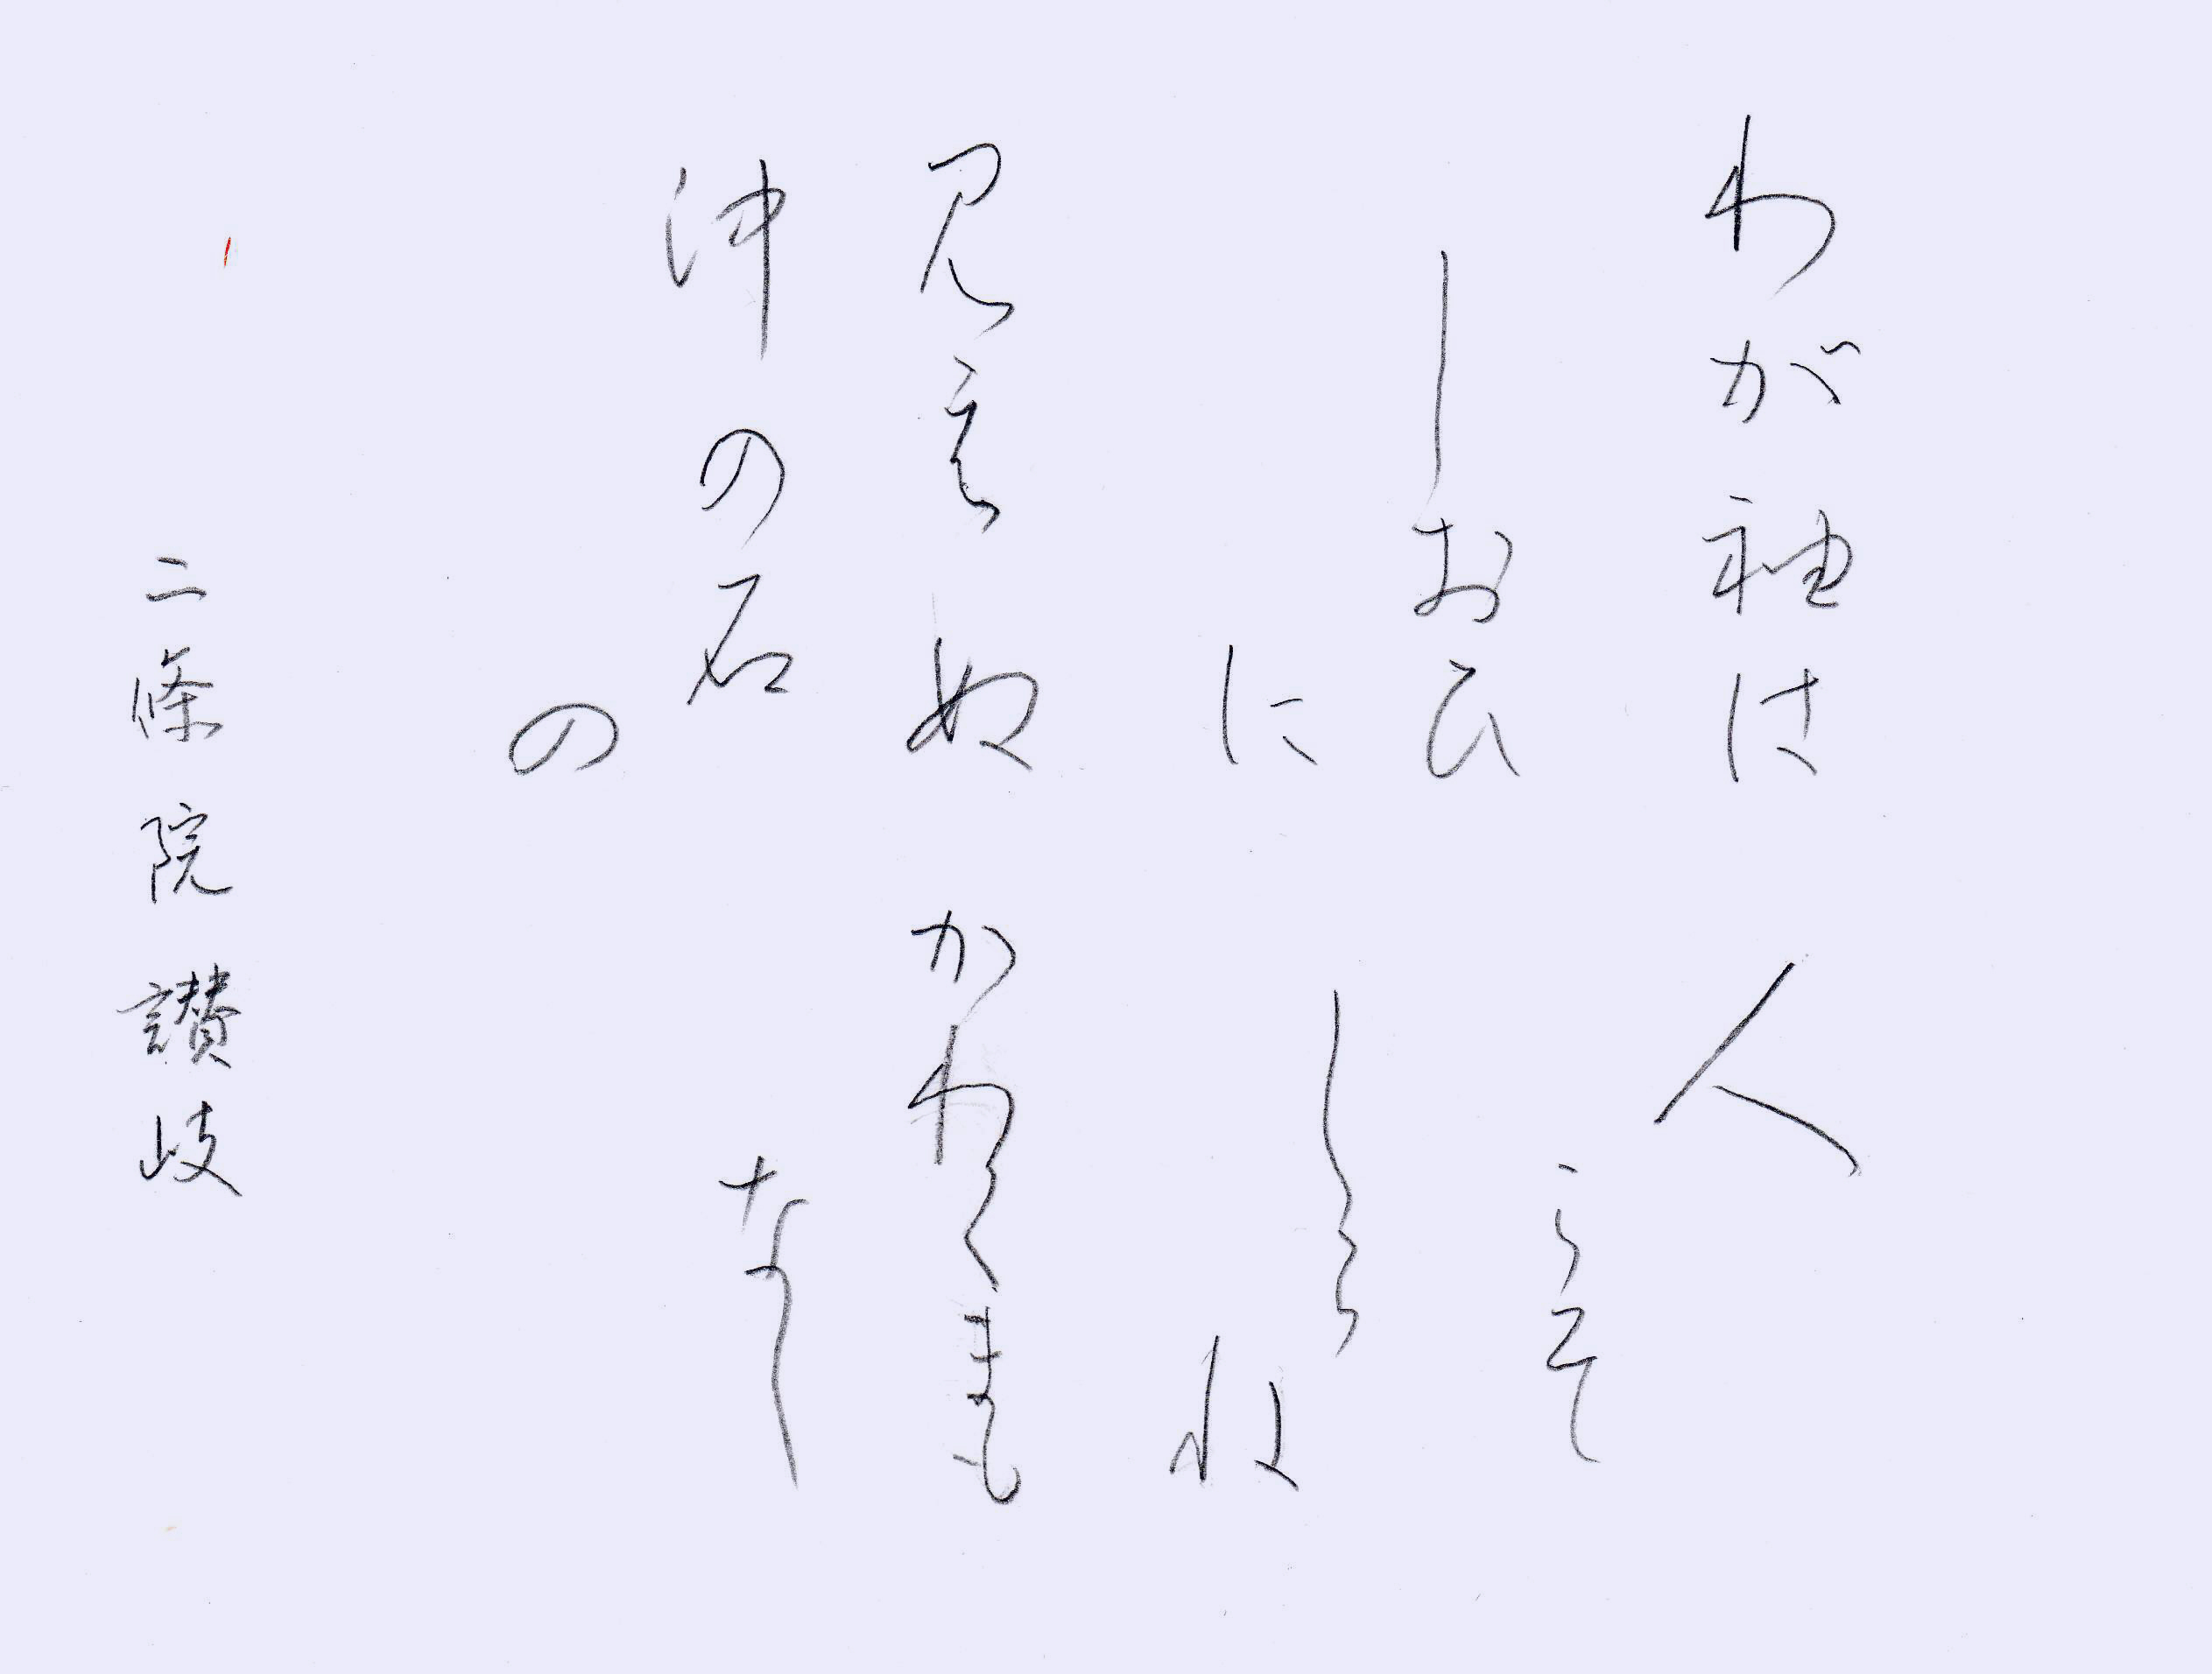 わが袖は
しおひ
に
見えぬ
沖の石
の
人
こそ
しら
ね
かわくまも
なし
二條院讃岐